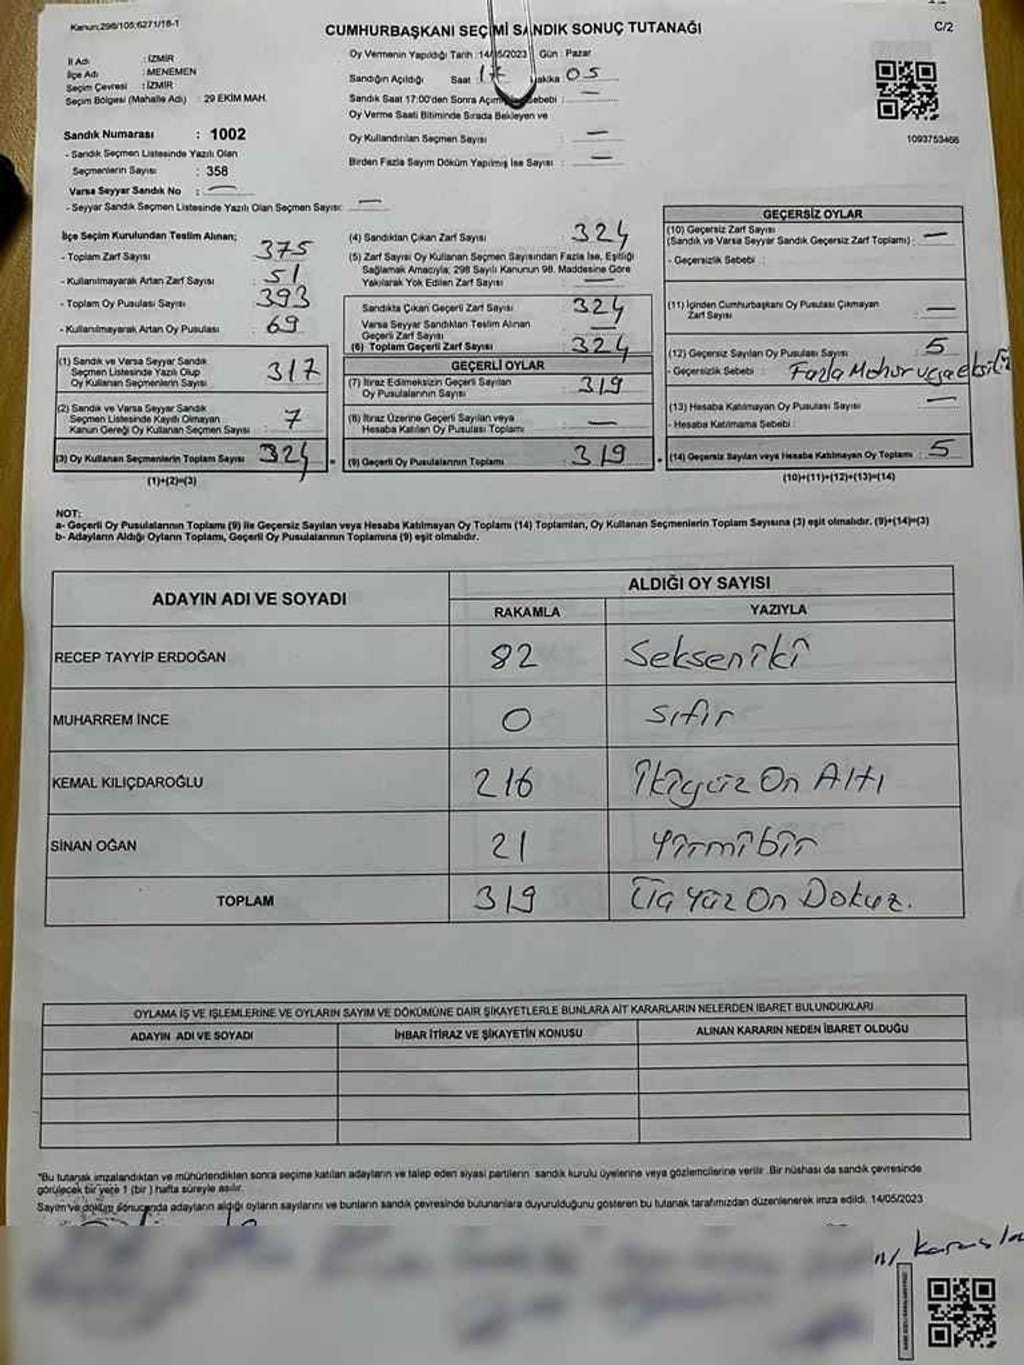 Kanun:298/105;6271/18-1
CUMHURBAŞKANI SEÇİMİ SANDIK SONUÇ TUTANAĞI
C/2
İl Adı : İZMİR
İlçe Adı : MENEMEN
Seçim Çevresi : İZMİR
Seçim Bölgesi (Mahalle Adı) : 29 EKİM MAH.
Sandık Numarası : 1002
- Sandık Seçmen Listesinde Yazılı Olan
Seçmenlerin Sayısı : 358
Varsa Seyyar Sandık No : —
- Seyyar Sandık Seçmen Listesinde Yazılı Olan Seçmen Sayısı: —
Oy Vermenin Yapıldığı Tarih : 14/5/2023 Gün : Pazar
Sandığın Açıldığı Saat : 17 Dakika 05
Sandık Saat 17:00'den Sonra Sebebi : —
Oy Verme Saati Bitiminde Sırada Bekleyen ve
Oy Kullandırılan Seçmen Sayısı : —
Birden Fazla Sayım Döküm Yapılmış İse Sayısı : —
1093753466
İlçe Seçim Kurulundan Teslim Alınan;
- Toplam Zarf Sayısı : 375
- Kullanılmayarak Artan Zarf Sayısı : 51
- Toplam Oy Pusulası Sayısı : 393
- Kullanılmayarak Artan Oy Pusulası : 69
(1) Sandık ve Varsa Seyyar Sandık
Seçmen Listesinde Yazılı Olup
Oy Kullanan Seçmenlerin Sayısı : 317
(2) Sandık ve Varsa Seyyar Sandık
Seçmen Listesinde Kayıtlı Olmayan
Kanun Gereği Oy Kullanan Seçmen Sayısı : 7
(3) Oy Kullanan Seçmenlerin Toplam Sayısı : 324
(1)+(2)=(3)
(4) Sandıktan Çıkan Zarf Sayısı : 324
(5) Zarf Sayısı Oy Kullanan Seçmen Sayısından Fazla İse, Eşitliği
Sağlamak Amacıyla; 298 Sayılı Kanunun 98. Maddesine Göre
Yakılarak Yok Edilen Zarf Sayısı : —
Sandıkta Çıkan Geçerli Zarf Sayısı : 324
Varsa Seyyar Sandıktan Teslim Alınan
Geçerli Zarf Sayısı : —
(6) Toplam Geçerli Zarf Sayısı : 324
GEÇERLİ OYLAR
(7) İtiraz Edilmeksizin Geçerli Sayılan
Oy Pusulalarının Sayısı : 319
(8) İtiraz Üzerine Geçerli Sayılan veya
Hesaba Katılan Oy Pusulası Toplamı : —
(9) Geçerli Oy Pusulalarının Toplamı : 319
GEÇERSİZ OYLAR
(10) Geçersiz Zarf Sayısı
(Sandık ve Varsa Seyyar Sandık Geçersiz Zarf Toplamı) : —
- Geçersizlik Sebebi :
(11) İçinden Cumhurbaşkanı Oy Pusulası Çıkmayan
Zarf Sayısı : —
(12) Geçersiz Sayılan Oy Pusulası Sayısı : 5
- Geçersizlik Sebebi : Fazla Mühür
(13) Hesaba Katılmayan Oy Pusulası Sayısı : —
- Hesaba Katılmama Sebebi :
(14) Geçersiz Sayılan veya Hesaba Katılmayan Oy Toplamı : 5
(10)+(11)+(12)+(13)=(14)
NOT:
a- Geçerli Oy Pusulalarının Toplamı (9) ile Geçersiz Sayılan veya Hesaba Katılmayan Oy Toplamı (14) Toplamları, Oy Kullanan Seçmenlerin Toplam Sayısına (3) eşit olmalıdır. (9)+(14)=(3)
b- Adayların Aldığı Oyların Toplamı, Geçerli Oy Pusulalarının Toplamına (9) eşit olmalıdır.
ADAYIN ADI VE SOYADI ALDIĞI OY SAYISI
RAKAMLA YAZIYLA
RECEP TAYYİP ERDOĞAN 82 Sekseniki
MUHARREM İNCE 0 sıfır
KEMAL KILIÇDAROĞLU 216 İkiyüz On Altı
SİNAN OĞAN 21 Yirmibir
TOPLAM 319 Üç Yüz On Dokuz.
OYLAMA İŞ VE İŞLEMLERİNE VE OYLARIN SAYIM VE DÖKÜMÜNE DAİR ŞİKAYETLERLE BUNLARA AİT KARARLARIN NELERDEN İBARET BULUNDUKLARI
ADAYIN ADI VE SOYADI İHBAR İTİRAZ VE ŞİKAYETİN KONUSU ALINAN KARARIN NEDEN İBARET OLDUĞU
*Bu tutanak imzalandıktan ve mühürlendikten sonra seçime katılan adayların ve talep eden siyasi partilerin sandık kurulu üyelerine veya gözlemcilerine verilir. Bir nüshası da sandık çevresinde
görülecek bir yere 1 (bir) hafta süreyle asılır.
Sayım ve döküm sonucunda adayların aldığı oyların sayılarını ve bunların sandık çevresinde bulunanlara duyurulduğunu gösteren bu tutanak tarafımızdan düzenlenerek imza edildi. 14/05/2023